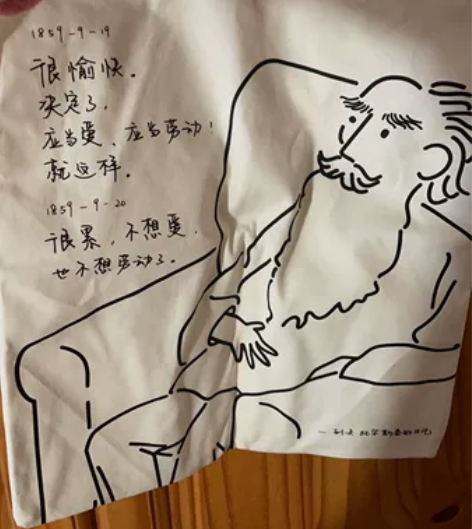 1859-9-19
很愉快。
决定了,
应当爱、应当劳动!
就这样。
1859-9-20
很累,不想爱,
也不想劳动了。
— 列夫·托尔斯泰的日记